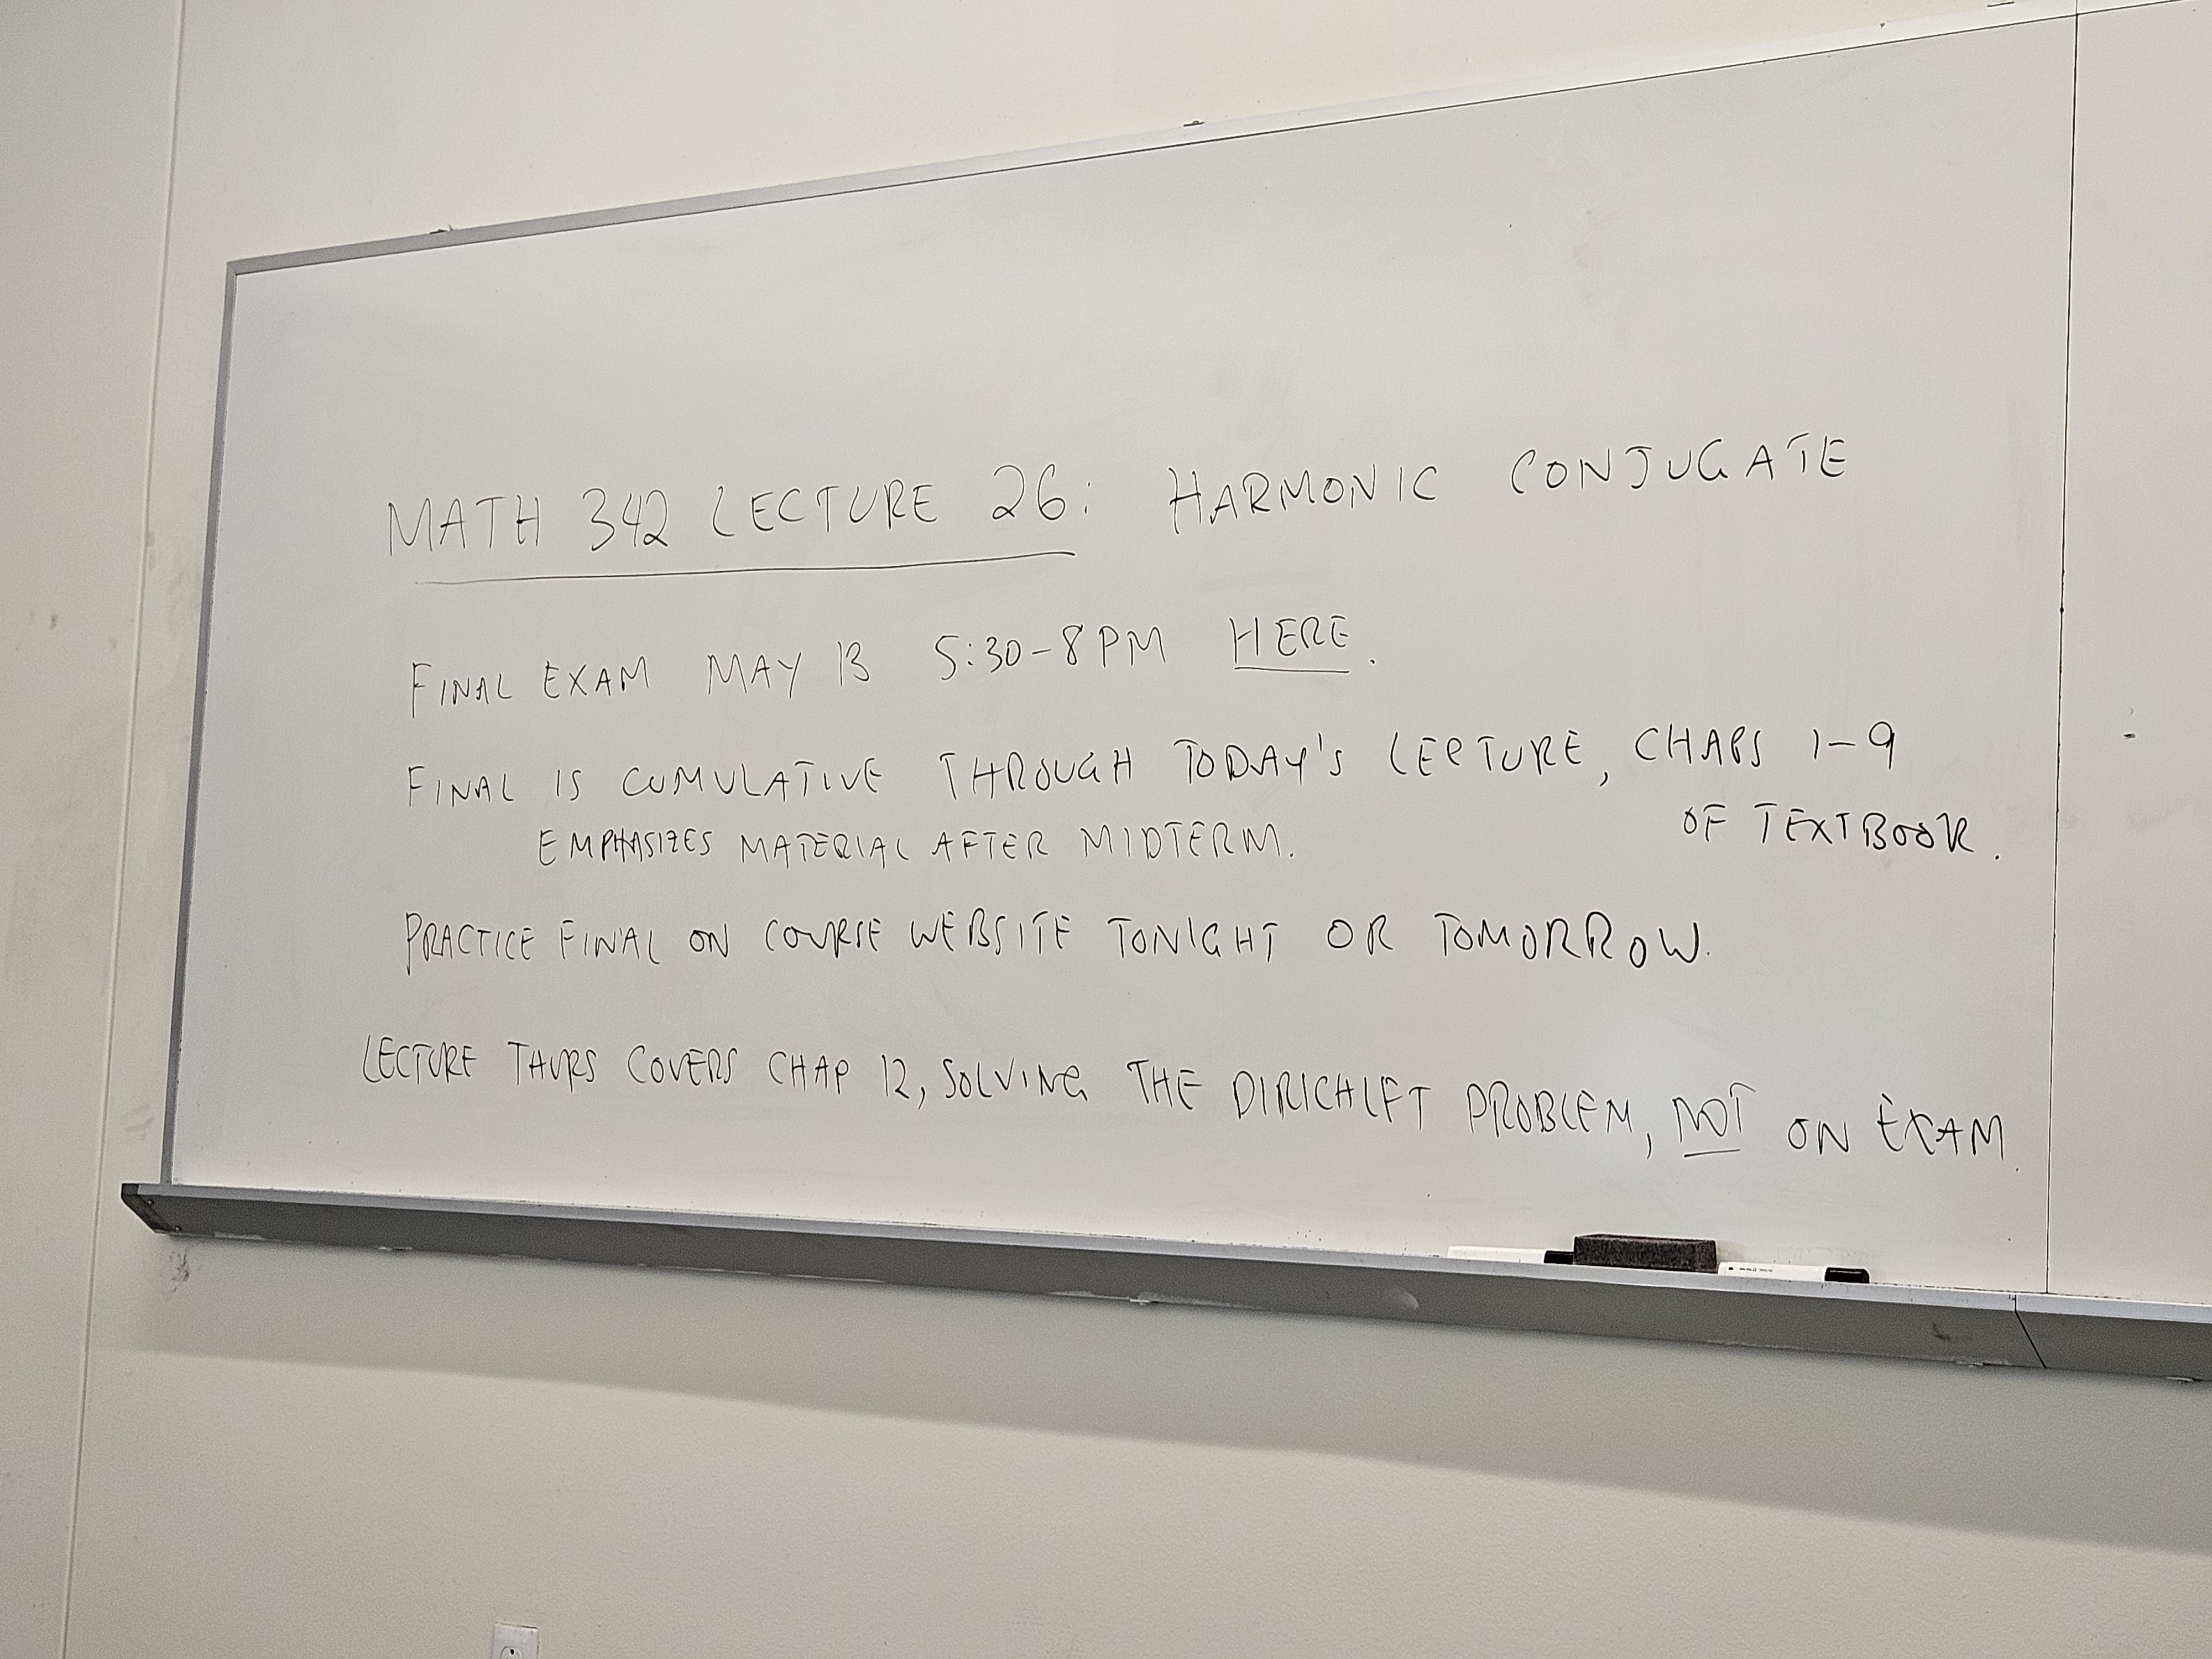 MATH 342 LECTURE 26: HARMONIC CONJUGATE
FINAL EXAM MAY 13 5:30-8PM HERE.
FINAL IS CUMULATIVE THROUGH TODAY'S LECTURE, CHAPS 1-9
OF TEXTBOOK.
EMPHASIZES MATERIAL AFTER MIDTERM.
PRACTICE FINAL ON COURSE WEBSITE TONIGHT OR TOMORROW.
LECTURE THURS COVERS CHAP 12, SOLVING THE DIRICHLET PROBLEM, NOT ON EXAM.